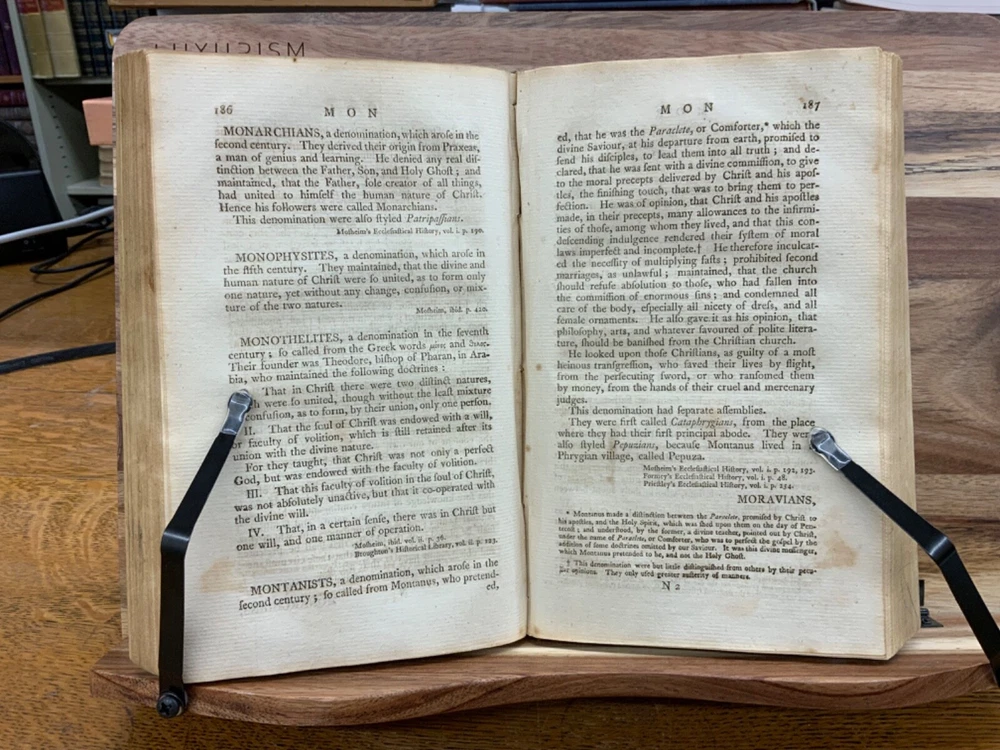 186
M O N
MONARCHIANS, a denomination, which aroſe in the
ſecond century. They derived their origin from Praxeas,
a man of genius and learning. He denied any real diſ-
tinction between the Father, Son, and Holy Ghoſt; and
maintained, that the Father, ſole creator of all things,
had united to himſelf the human nature of Chriſt.
Hence his followers were called Monarchians.
This denomination were alſo ſtyled Patripaſſians.
Moſheim's Eccleſiaſtical Hiſtory, vol. i. p. 190.
MONOPHYSITES, a denomination, which aroſe in
the fifth century. They maintained, that the divine and
human nature of Chriſt were ſo united, as to form only
one nature, yet without any change, confuſion, or mix-
ture of the two natures.
Moſheim, ibid. p. 420.
MONOTHELITES, a denomination in the ſeventh
century; ſo called from the Greek words and
Their founder was Theodore, biſhop of Pharan, in Ara-
bia, who maintained the following doctrines:
That in Chriſt there were two diſtinct natures,
were ſo united, though without the leaſt mixture
confuſion, as to form, by their union, only one perſon.
II. That the ſoul of Chriſt was endowed with a will,
or faculty of volition, which is ſtill retained after its
union with the divine nature.
For they taught, that Chriſt was not only a perfect
God, but was endowed with the faculty of volition.
III. That this faculty of volition in the ſoul of Chriſt,
was not abſolutely unactive, but that it co-operated with
the divine will.
IV. That, in a certain ſenſe, there was in Chriſt but
one will, and one manner of operation.
Moſheim, ibid. vol. ii. p. 36.
Broughton's Hiſtorical Library, vol. ii. p. 123.
MONTANISTS, a denomination, which aroſe in the
ſecond century; ſo called from Montanus, who pretend-
ed,
M O N
187
ed, that he was the Paraclete, or Comforter,* which the
divine Saviour, at his departure from earth, promiſed to
ſend his diſciples, to lead them into all truth; and de-
clared, that he was ſent with a divine commiſſion, to give
to the moral precepts delivered by Chriſt and his apoſ-
tles, the finiſhing touch, that was to bring them to per-
fection. He was of opinion, that Chriſt and his apoſtles
made, in their precepts, many allowances to the infirmi-
ties of thoſe, among whom they lived, and that this con-
deſcending indulgence rendered their ſyſtem of moral
laws imperfect and incomplete.† He therefore inculcat-
ed the neceſſity of multiplying faſts; prohibited ſecond
marriages, as unlawful; maintained, that the church
ſhould refuſe abſolution to thoſe, who had fallen into
the commiſſion of enormous ſins; and condemned all
care of the body, eſpecially all nicety of dreſs, and all
female ornaments. He alſo gave it as his opinion, that
philoſophy, arts, and whatever ſavoured of polite litera-
ture, ſhould be baniſhed from the Chriſtian church.
He looked upon thoſe Chriſtians, as guilty of a moſt
heinous tranſgreſſion, who ſaved their lives by flight,
from the perſecuting ſword, or who ranſomed them
by money, from the hands of their cruel and mercenary
judges.
This denomination had ſeparate aſſemblies.
They were firſt called Cataphrygians, from the place
where they had their firſt principal abode. They wer
alſo ſtyled Pepuzians, becauſe Montanus lived in
Phrygian village, called Pepuza.
Moſheim's Eccleſiaſtical Hiſtory, vol. i. p. 192, 193.
Formey's Eccleſiaſtical Hiſtory, vol. i. p. 48.
Prieſtley's Eccleſiaſtical Hiſtory, vol. i. p. 254.
MORAVIANS,
* Montanus made a diſtinction between the Paraclete, promiſed by Chriſt to
his apoſtles, and the Holy Spirit, which was ſhed upon them on the day of Pen-
tecoſt; and underſtood, by the former, a divine teacher, pointed out by Chriſt,
under the name of Paraclete, or Comforter, who was to perfect the goſpel by the
addition of ſome doctrines omitted by our Saviour. It was this divine meſſenger,
which Montanus pretended to be, and not the Holy Ghoſt.
† This denomination were but little diſtinguiſhed from others by their pecu-
liar opinions. They only uſed greater auſterity of manners.
N 2